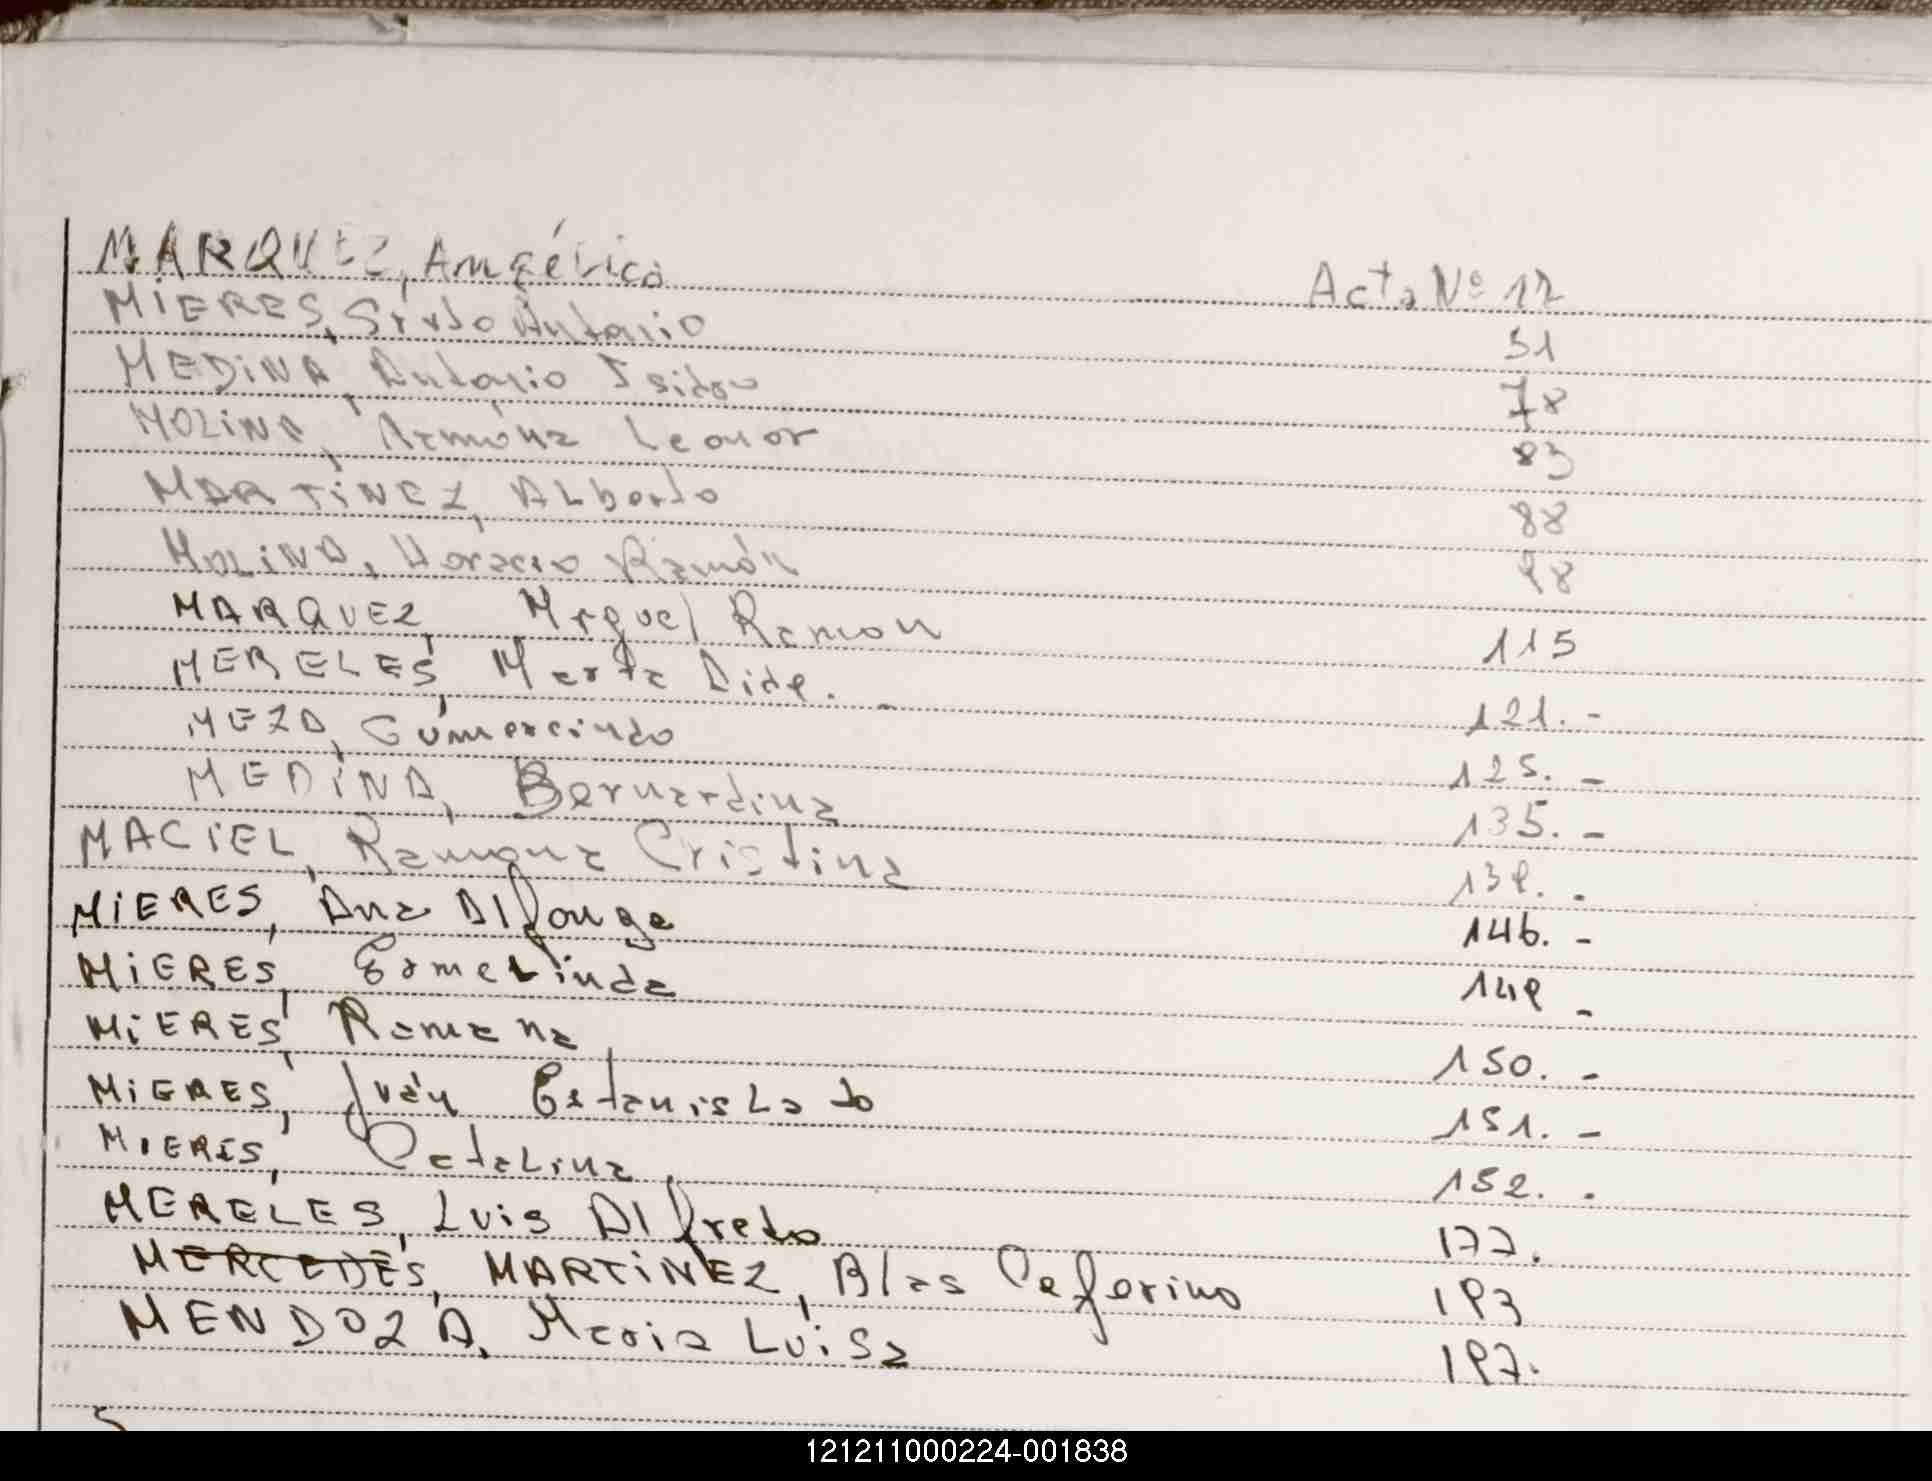 MARQUEZ, Angélica Acta Nº 12
MIERES, Sixto Antonio 51
MEDINA, Antonio Isidro 78
MOLINA, Ramona Leonor 83
MARTINEZ, Alberto 88
MOLINA, Horacio Ramón 98
MARQUEZ, Miguel Ramon 115
MERELES, Marta Dide. - 121. -
MEZA, Gumercindo 125. -
MEDINA, Bernardina 135. -
MACIEL, Ramona Cristina 139. -
MIERES, Ana Alfonga 146. -
MIERES, Ermelinda 149 -
MIERES, Ramona 150. -
MIERES, Juán Estanislado 151. -
MIERES, Catalina 152. .
MERELES, Luis Alfredo 177.
MERCEDES, MARTINEZ, Blas Ceferino 193
MENDOZA, Maria Luisa 197.
121211000224-001838